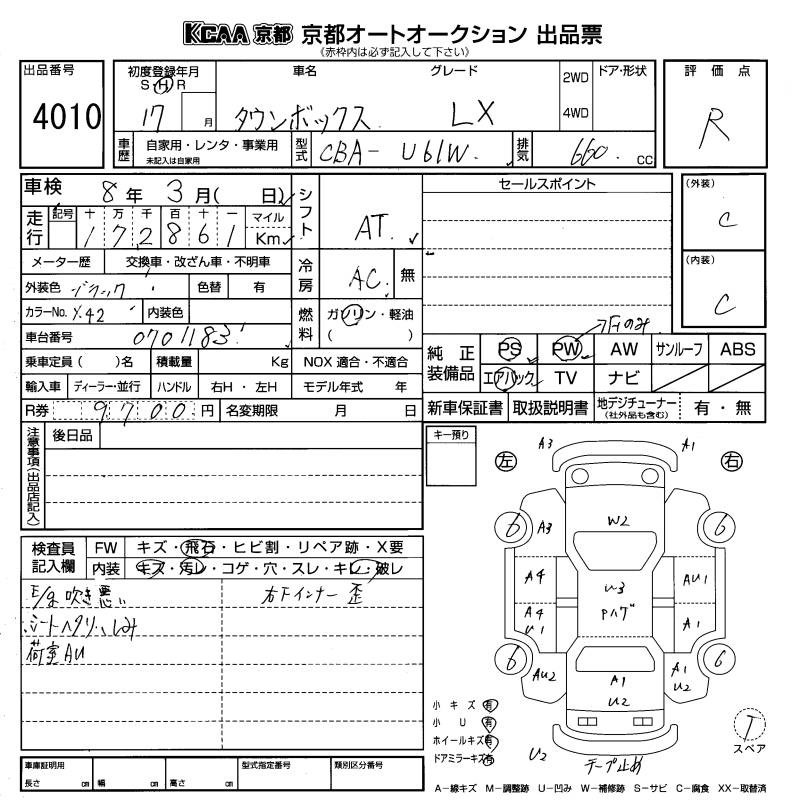 KCAA 京都 京都オートオークション 出品票
(赤枠内は必ず記入して下さい)
出品番号
4010
初度登録年月
S・H・R
17 月
車名
タウンボックス
グレード
LX
2WD
4WD
ドア・形状
車歴
自家用・レンタ・事業用
未記入は自家用
型式
CBA- U61W
排気
660 CC
評価点
R
車検 8年 3月( 日)
走行
記号 十 万 千 百 十 一 マイル
1 7 2 8 6 1 Km
メーター歴 交換車・改ざん車・不明車
外装色 ブラック 色替 有
カラーNo. X42 内装色
車台番号 0701183
乗車定員( )名 積載量 Kg NOX 適合・不適合
輸入車 ディーラー・並行 ハンドル 右H・左H モデル年式 年
R券 9700円 名変期限 月 日
シフト
AT
冷房
AC 無
燃料
ガソリン・軽油
( )
セールスポイント
(外装)
C
(内装)
C
フロントのみ
純正装備品
PS PW AW サンルーフ ABS
エアバック TV ナビ
新車保証書 取扱説明書 地デジチューナー
(社外品も含む)
有・無
注意事項(出品店記入)
後日品
キー預り
検査員記入欄
FW キズ・飛石・ヒビ割・リペア跡・X要
内装 キズ・汚レ・コゲ・穴・スレ・キレ・破レ
E/g 吹き悪い
シートヘタリ、しみ
荷室AU
右Fインナー歪
左
右
A3
A1
6
A3
W2
6
A4
U3
AU1
A4
U1
Pハゲ
A1
6
AU2
A1
U2
A1
U2
6
U2
テープ止め
T
スペア
小キズ 有
小U 有
ホイールキズ 有
ドアミラーキズ 有
車庫証明用
長さ cm 幅 cm 高さ cm
型式指定番号
類別区分番号
A-線キズ M-調整跡 U-凹み W-補修跡 S-サビ C-腐食 XX-取替済